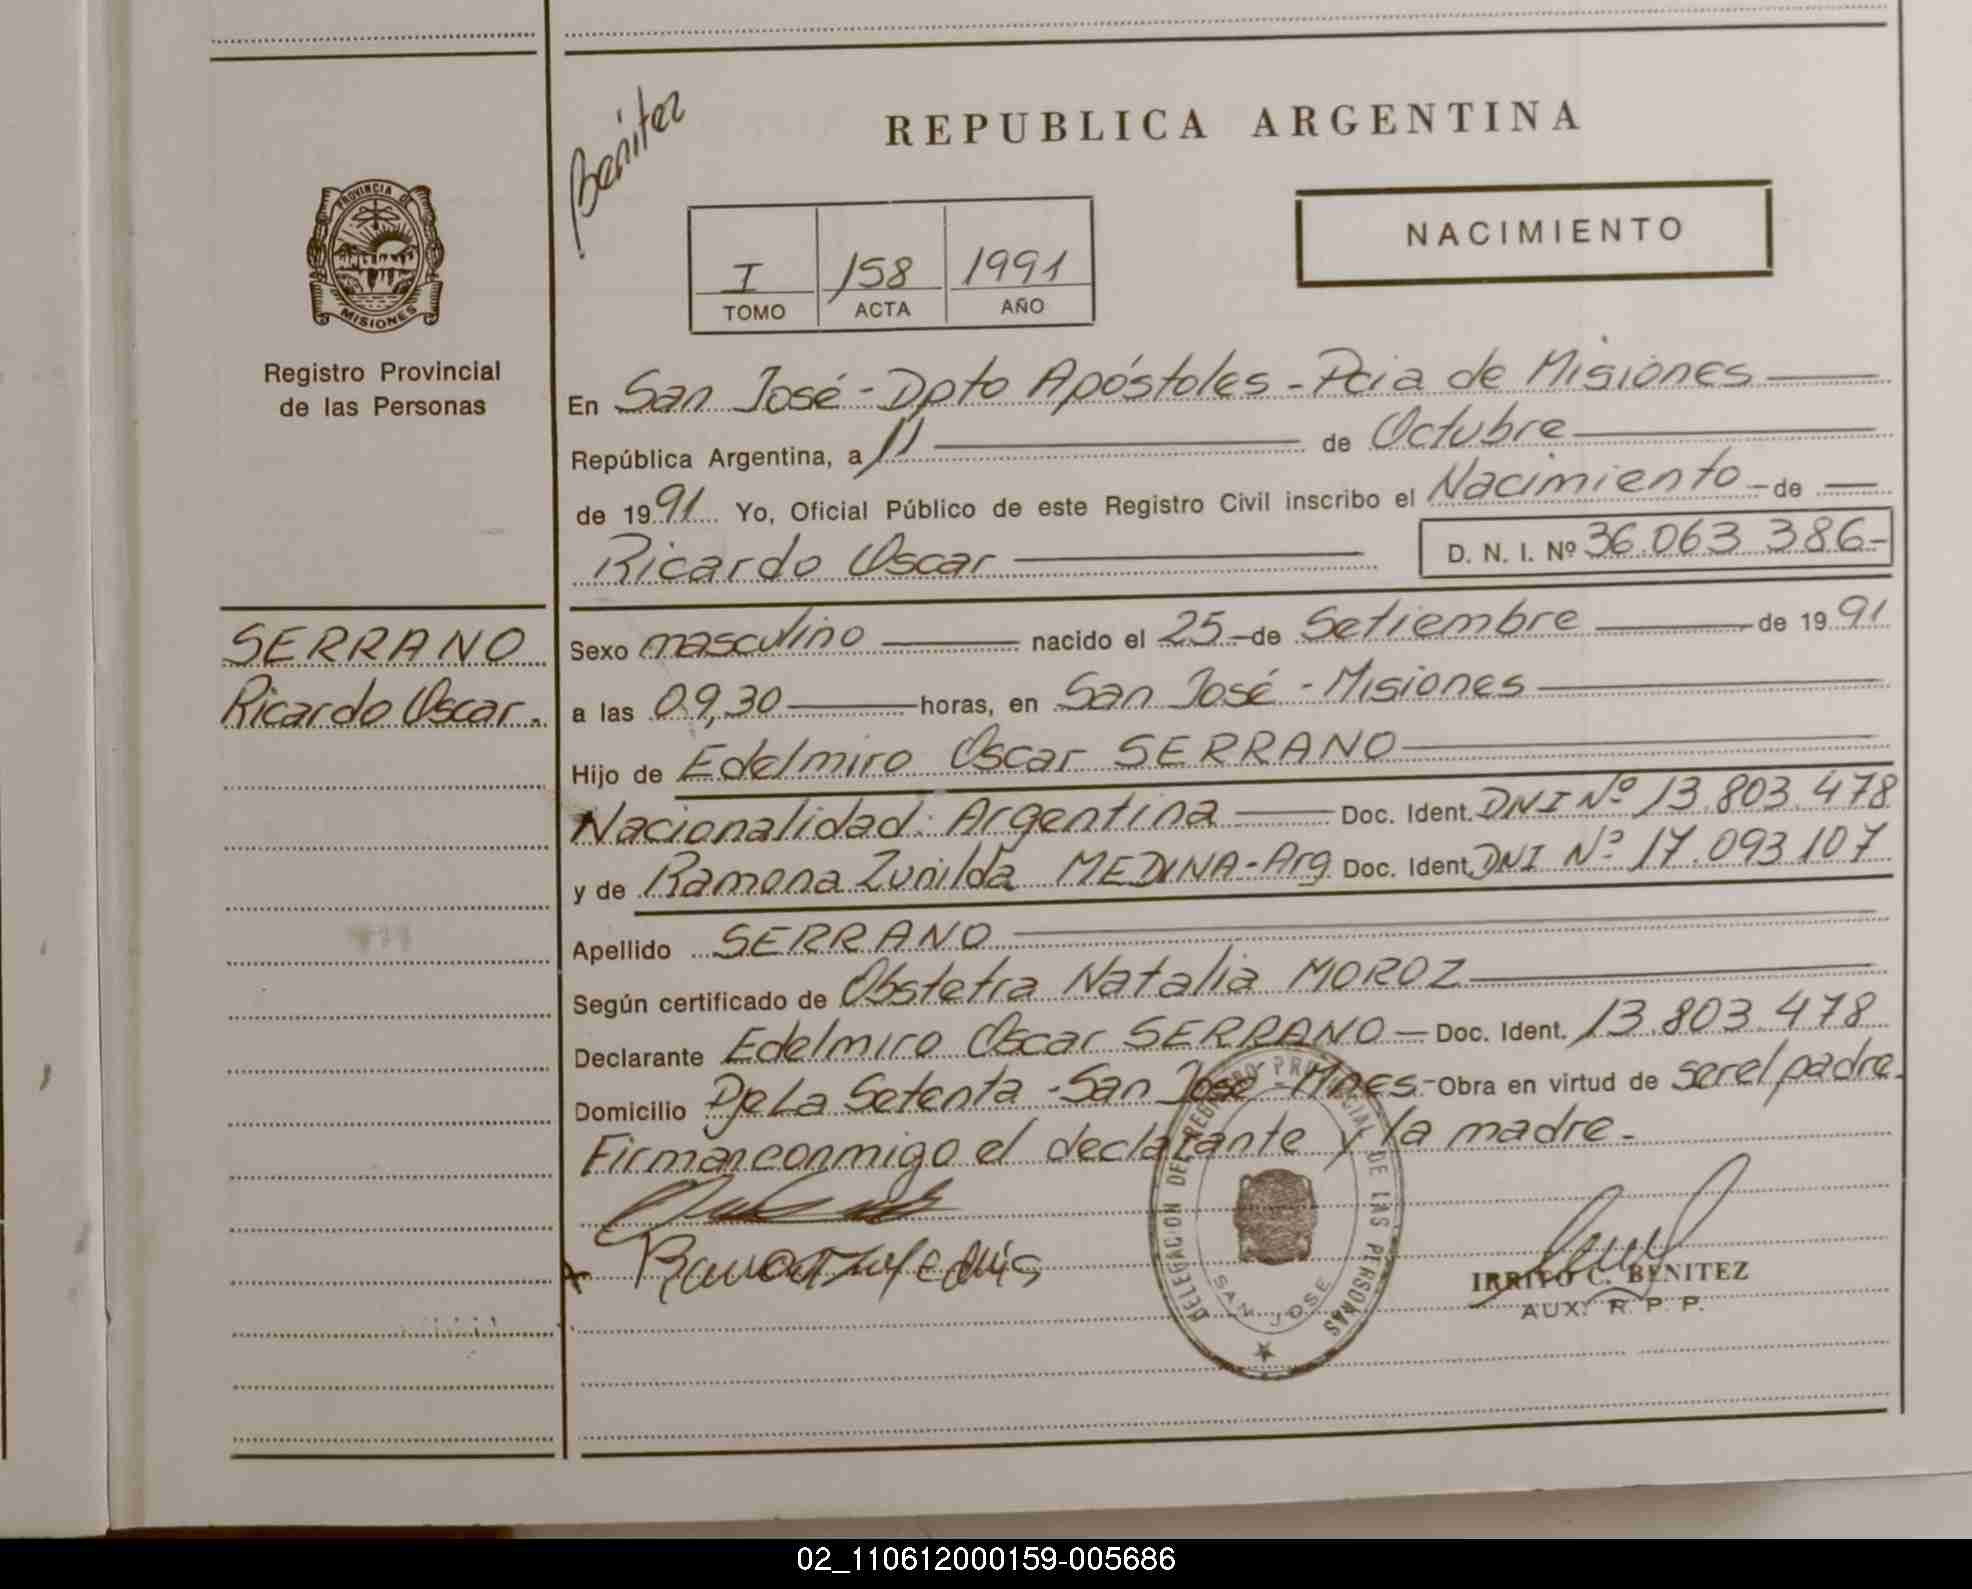 Benitez
REPUBLICA ARGENTINA
NACIMIENTO
I 158 1991
TOMO ACTA AÑO
PROVINCIA DE MISIONES
Registro Provincial
de las Personas
En San José - Dpto Apóstoles - Pcia de Misiones
República Argentina, a 11 de Octubre
de 1991 Yo, Oficial Público de este Registro Civil inscribo el Nacimiento de
Ricardo Oscar D. N. I. Nº 36.063.386-
SERRANO
Ricardo Oscar.
Sexo masculino nacido el 25 de Setiembre de 1991
a las 09,30 horas, en San José - Misiones
Hijo de Edelmiro Oscar SERRANO
Nacionalidad: Argentina Doc. Ident. DNI Nº 13.803.478
y de Ramona Zunilda MEDINA - Arg Doc. Ident. DNI Nº 17.093.107
Apellido SERRANO
Según certificado de Obstetra Natalia MOROZ
Declarante Edelmiro Oscar SERRANO - Doc. Ident. 13.803.478
Domicilio Pje La Setenta - San José - Mnes. - Obra en virtud de ser el padre.
Firman conmigo el declarante y la madre.-
DELEGACION DEL REGISTRO PROVINCIAL DE LAS PERSONAS
SAN JOSE
IRRITO C. BENITEZ
AUX. R. P. P.
02_110612000159-005686